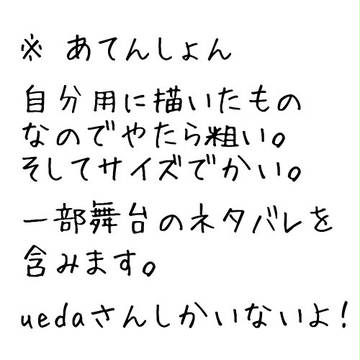 ※ あてんしょん
自分用に描いたもの
なのでやたら粗い。
そしてサイズでかい。
一部舞台のネタバレを
含みます。
uedaさんしかいないよ!